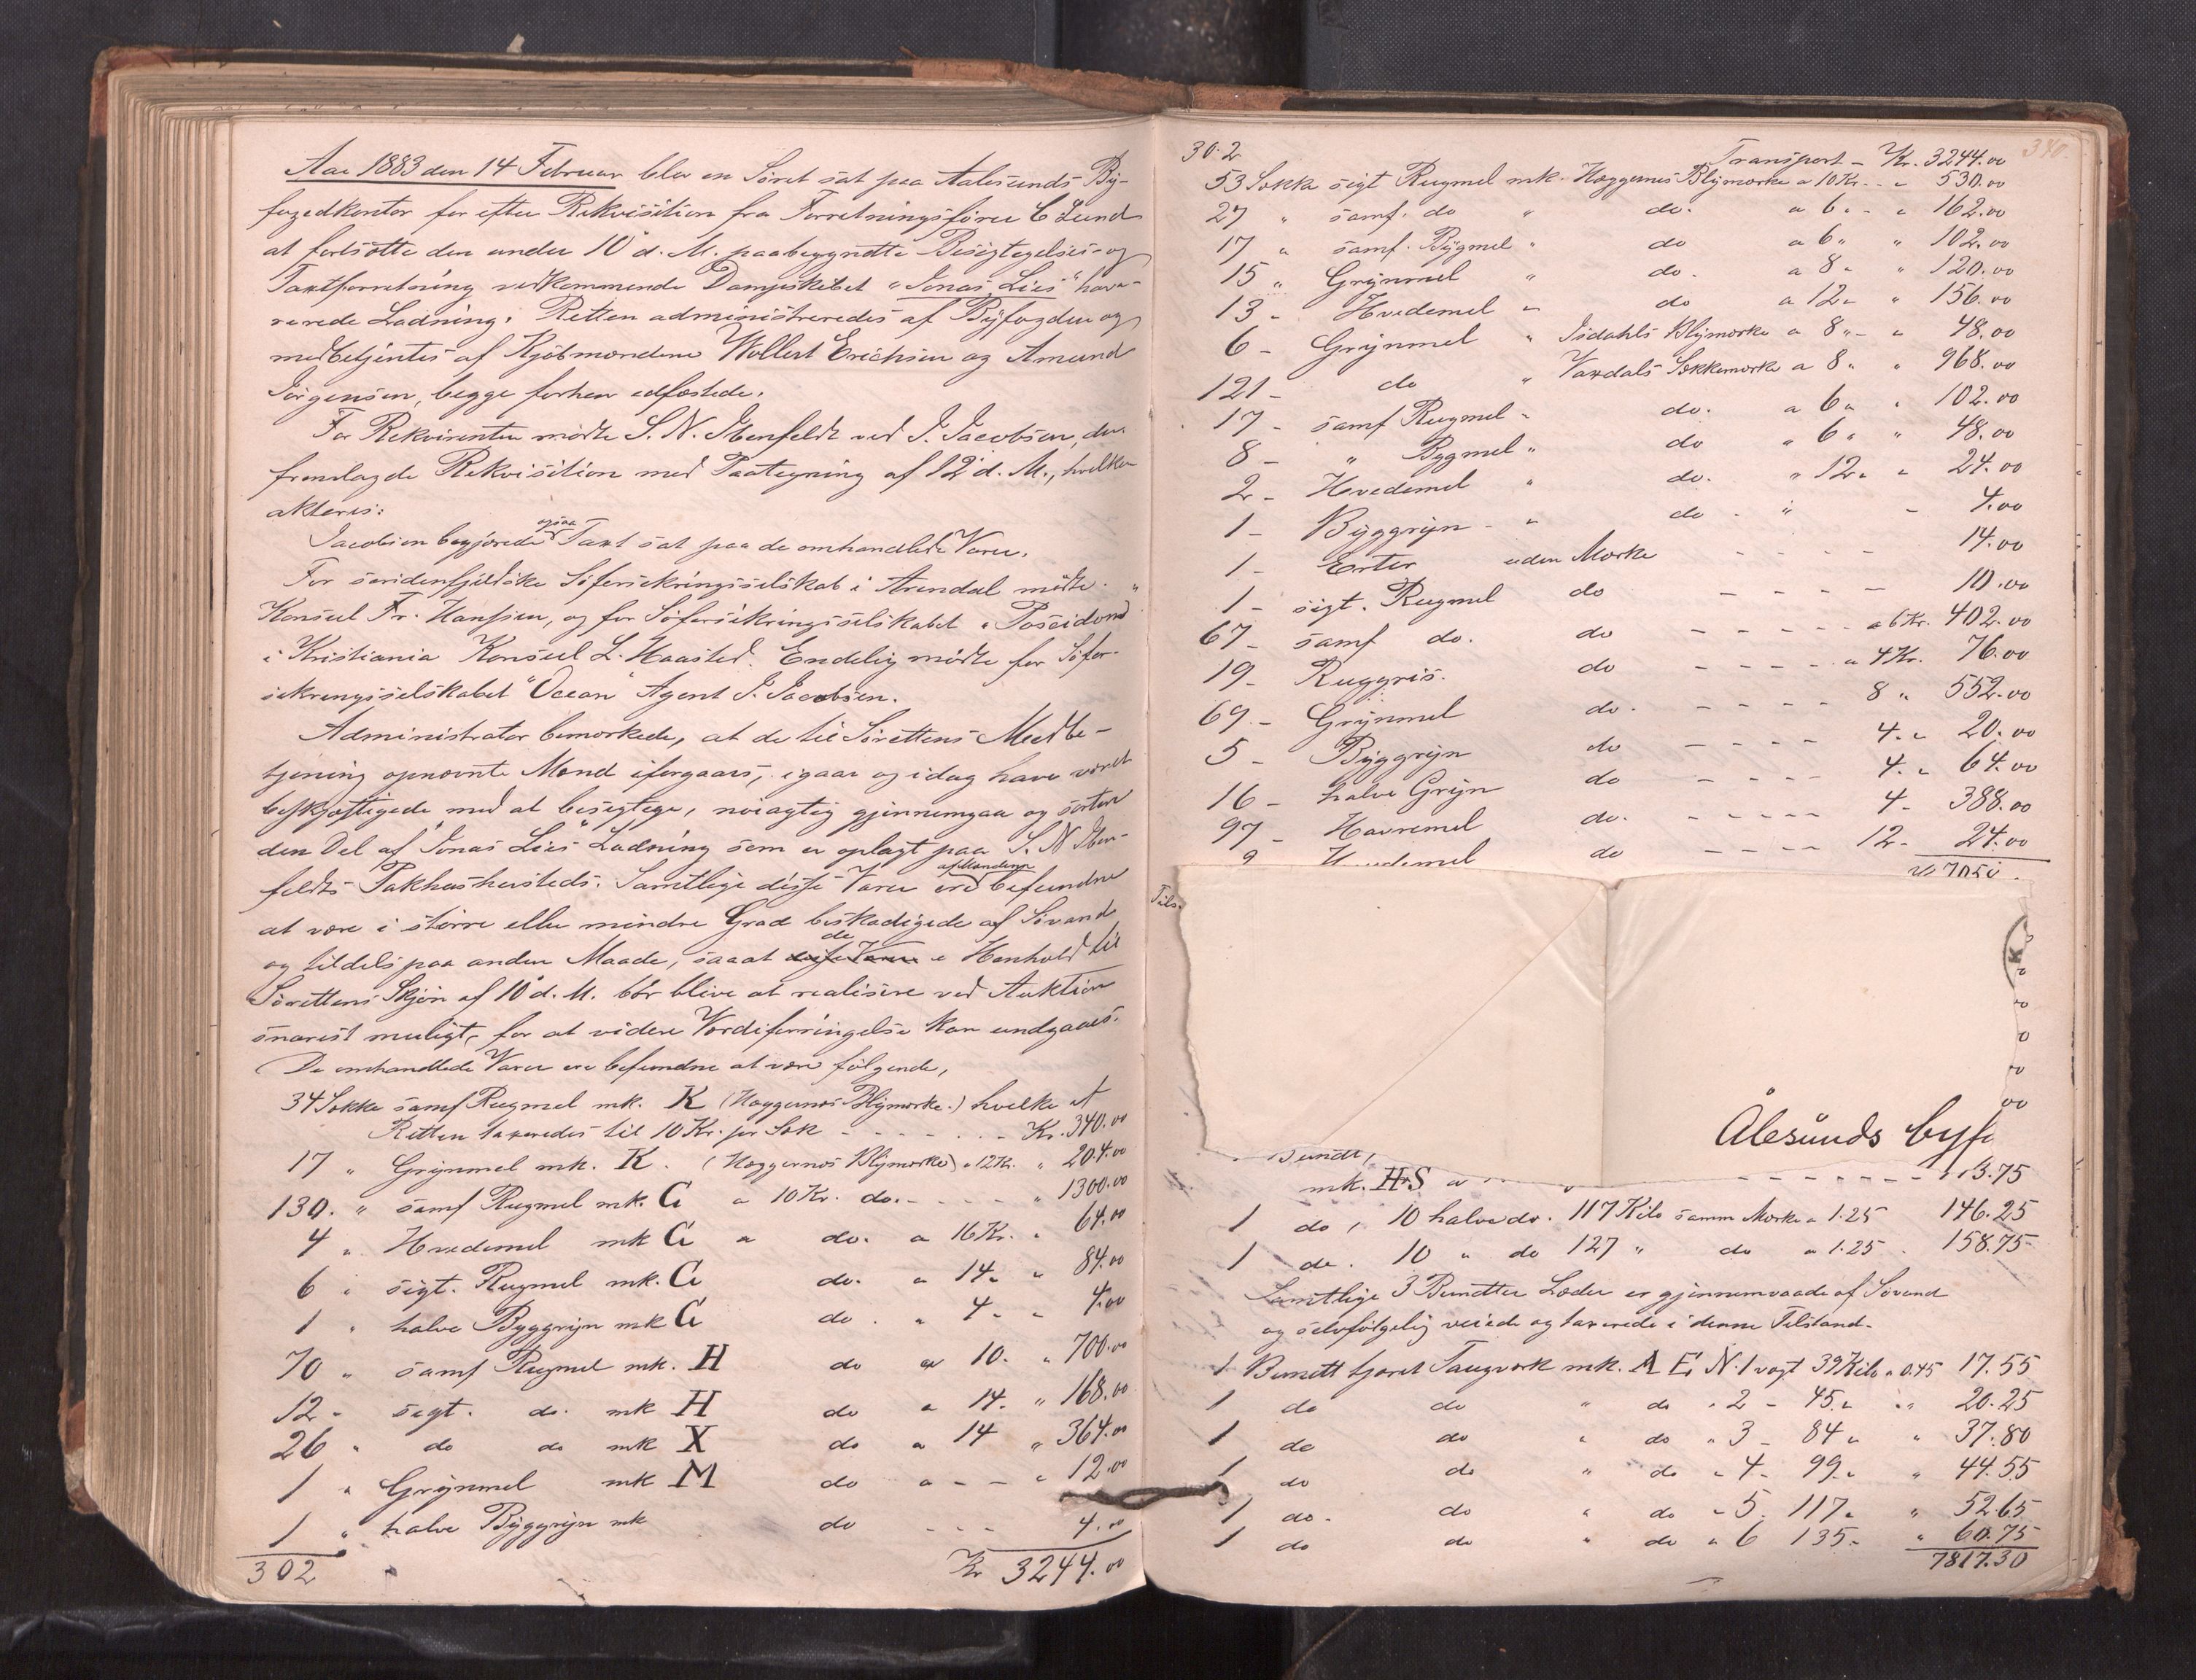 Aar 1883 den 14 Februar blev en Söret sat paa Aalesunds By-
fogedkontor for efter Rekvisition fra Forretningsförer C Lund
at fortsætte den under 10 d. M. paabegyndte Besigtegelses- og
Taxtforretning vedkommende Dampskibet "Jonas Lies" hava-
rerede Ladning. Retten administreredes af Byfogden og
medbetjentes af Kjöbmændene Wollert Erichsen og Amund
Jörgensen, begge forhen edfæstede.
For Rekvirenten mödte S. N. Ibenfeldt ved J. Jacobsen, der
fremlagde Rekvisition med Paategning af 12 d. M., hvilken
akteres:
Jacobsen begjærede ogsaa Taxt sat paa de omhandlede Varer.
For söndenfjeldske Söforsikringsselskab i Arendal mödte
Konsul Fr. Hanssen, og for Söforsikringsselskabet "Poseidon"
i Kristiania Konsul L. Kaasted. Endelig mödte for Söfor-
sikringsselskabet "Ocean" Agent J. Jacobsen.
Administrator bemærkede, at de til Sörettens Medbe-
tjening opnævnte Mænd iforgaars, igaar og idag have været
beskjæftigede med at besigtege, nöiagtig gjennemgaa og sortere
den Del af "Jonas Lies" Ladning som er oplagt paa S. N Iben-
feldts Pakhushusteds. Samtlige disse Varer ere af Mændene befundne
at være i större eller mindre Grad beskadigede af Sövand
og tildels paa anden Maade, saaat disse Varer de i Henhold til
Sörettens Skjön af 10 d. M. bör blive at realisere ved Auktion
snarest muligt, for at videre Værdiforringelse kan undgaaes.
De omhandlede Varer ere befundne at være fölgende,
34 Sække samf Rugmel mk. K (Hæggernæs Blymærke.) hvilke af
Retten taxeredes til 10 Kr. pr Sæk - - - - - Kr. 340.00
17 " Grynmel mk. K. (Hæggernæs Blymærke) a 12 Kr. " 204.00
130. " samf Rugmel mk. G a 10 Kr. do. - - - - " 1300.00
4 " Hvedemel mk G a do. a 16 Kr. " 64.00
6 " sigt. Rugmel mk. G do. a 14 " " 84.00
1 " halve Byggryn mk G do. " 4 - " 4.00
70 " samf Rugmel mk. H do a 10. " 700.00
12 - sigt. do. mk H do a 14. " 168.00
26 " do do mk X do a 14 " 364.00
1 " Grynmel mk M do a - - " 12.00
1 " halve Byggryn mk do - - - 4.00
302 Kr 3244.00
340.
302 Transport - Kr. 3244.00
53 Sække sigt Rugmel mk. Hæggernæs Blymærke a 10 Kr. - " 530.00
27 " samf. do " do. a 6 " - " 162.00
17 " samf. Bygmel " do a 6 " " 102.00
15 " Grynmel " do. a 8 " " 120.00
13 - Hvedemel " do a 12 " " 156.00
6 - Grynmel " Isdahls Blymærke a 8 " - " 48.00
121 - do " Vaxdals Sækkemærke a 8 " " 968.00
17 - samf Rugmel - do. a 6 " " 102.00
8 - " Bygmel " do " 6 " " 48.00
2 - Hvedemel " do. " 12 " " 24.00
1 - Byggryn - " do - " - 4.00
1 - Erter uden Mærke - - - - 14.00
1 - sigt. Rugmel do - - - - 10.00
67 - samf do. do - - - - - a 6 Kr. 402.00
19 - Ruggris. do - - - - - a 4 Kr. 76.00
69 - Grynmel do. - - - - 8 " 552.00
5 - Byggryn do - - - - 4. " 20.00
16 - halve Gryn do - - - - 4. " 64.00
97 - Havremel do. - - - - - 4 - 388.00
Hvedemel do - - - - 12 - 24.00
Tils.
K
Ålesunds byf
Bundt,
mk. H S a - - - - - - - 13.75
1 do, 10 halve do. 117 Kilo samm Mærke a 1.25 146.25
1 do. 10 " do 127 " do a 1.25 . 158.75
Samtlige 3 Bundter Læder er gjennemvaade af Sövand
og selvfölgelig veiede og taxerede i denne Tilstand.
1 Bundt tjæret Taugværk mk. A E. N. 1 vægt 39 Kilo a 0.45 17.55
1 do do " do " 2 - 45 " " 20.25
1 do do " do " 3 - 84 " " 37.80
1 do do " do " 4 - 99 " " 44.55
1 do. do " do " 5. 117 " " 52.65
1 do do " do " 6 135 - " 60.75
7817.30